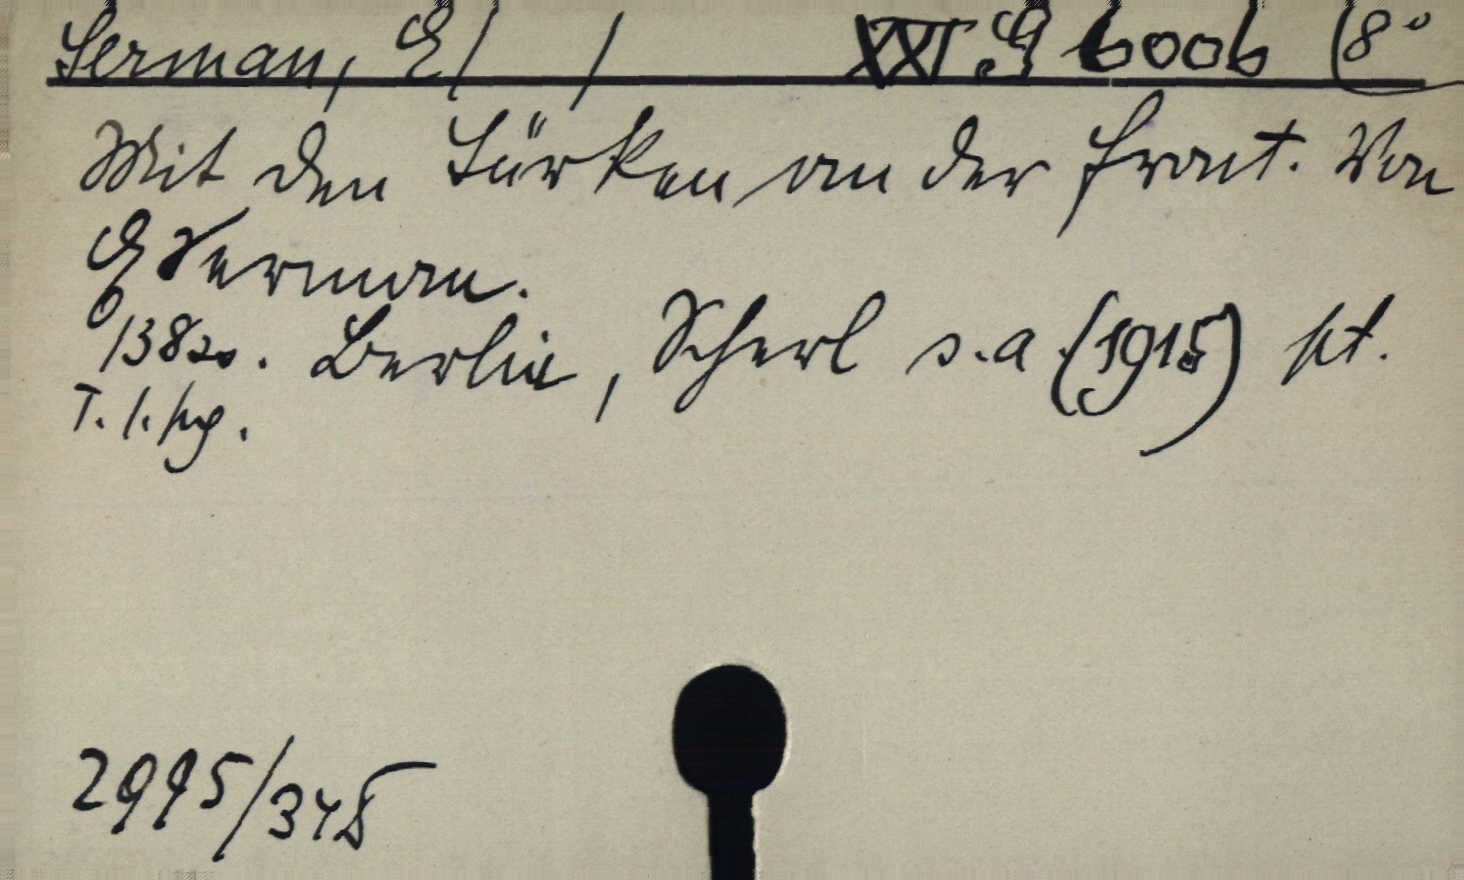 Serman, E/ / XXI G 6006 (8°
Mit den Türken an der Front. Von
E Serman.
Berlin, Scherl s.a (1915) st.
2995/345